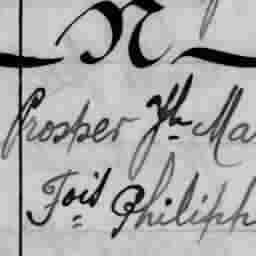 N
Prosper Jh Ma
Fois Philipp